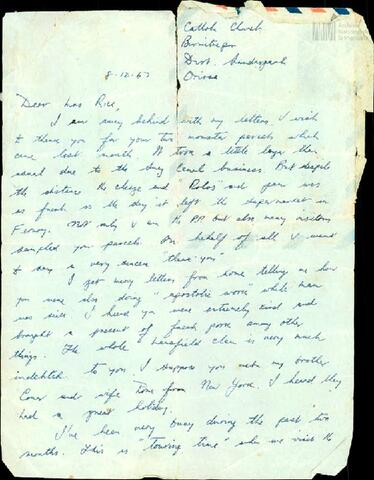 Catholic Church
Birmitrapur
Dist. Sundargarh
Orissa
8-12-67
Dear Mrs Rice,
I am away behind with my letters. I wish
to thank you for your two monster parcels which
came last month. It took a little longer than
usual due to the Suez Canal business. But despite
the distance the cheese and "Rolos" and jam was
as fresh as the day it left the supermarket in
Fermoy. Not only I and the PP but also many visitors
sampled your parcels. On behalf of all I want
to say a very sincere "thank-you"
I get many letters from home telling me how
you were also doing "apostolic work" while mam
was sick. I heard you were extremely kind and
brought a present of fresh pork among other
things. The whole clan is very much
indebted to you. I suppose you met my brother
Conor and wife from New York. I heard they
had a great holiday.
I've been very busy during the past two
months. This is "touring time" when we visit the